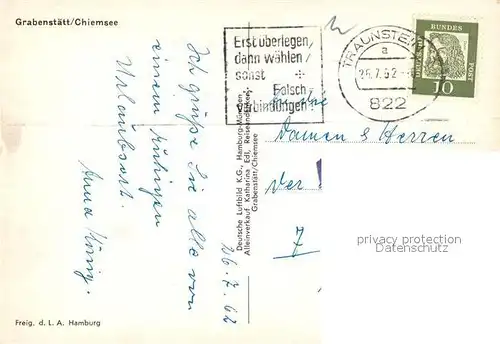 Grabenstätt/Chiemsee
Erst überlegen,
dann wählen/
sonst
Falsch
verbindungen!
TRAUNSTEIN
a
26.7.62
822
DEUTSCHE
BUNDES
POST
10
Ich grüße Sie alle von
einem ruhigen
Urlaubsort.
Anna König.
26.7.62
Deutsche Luftbild K.G., Hamburg-München
Alleinverkauf Katharina Edl, Reiseandenken,
Grabenstätt/Chiemsee
Damen & Herren
Ver
7
privacy protection
Datenschutz
Freig. d. L. A. Hamburg